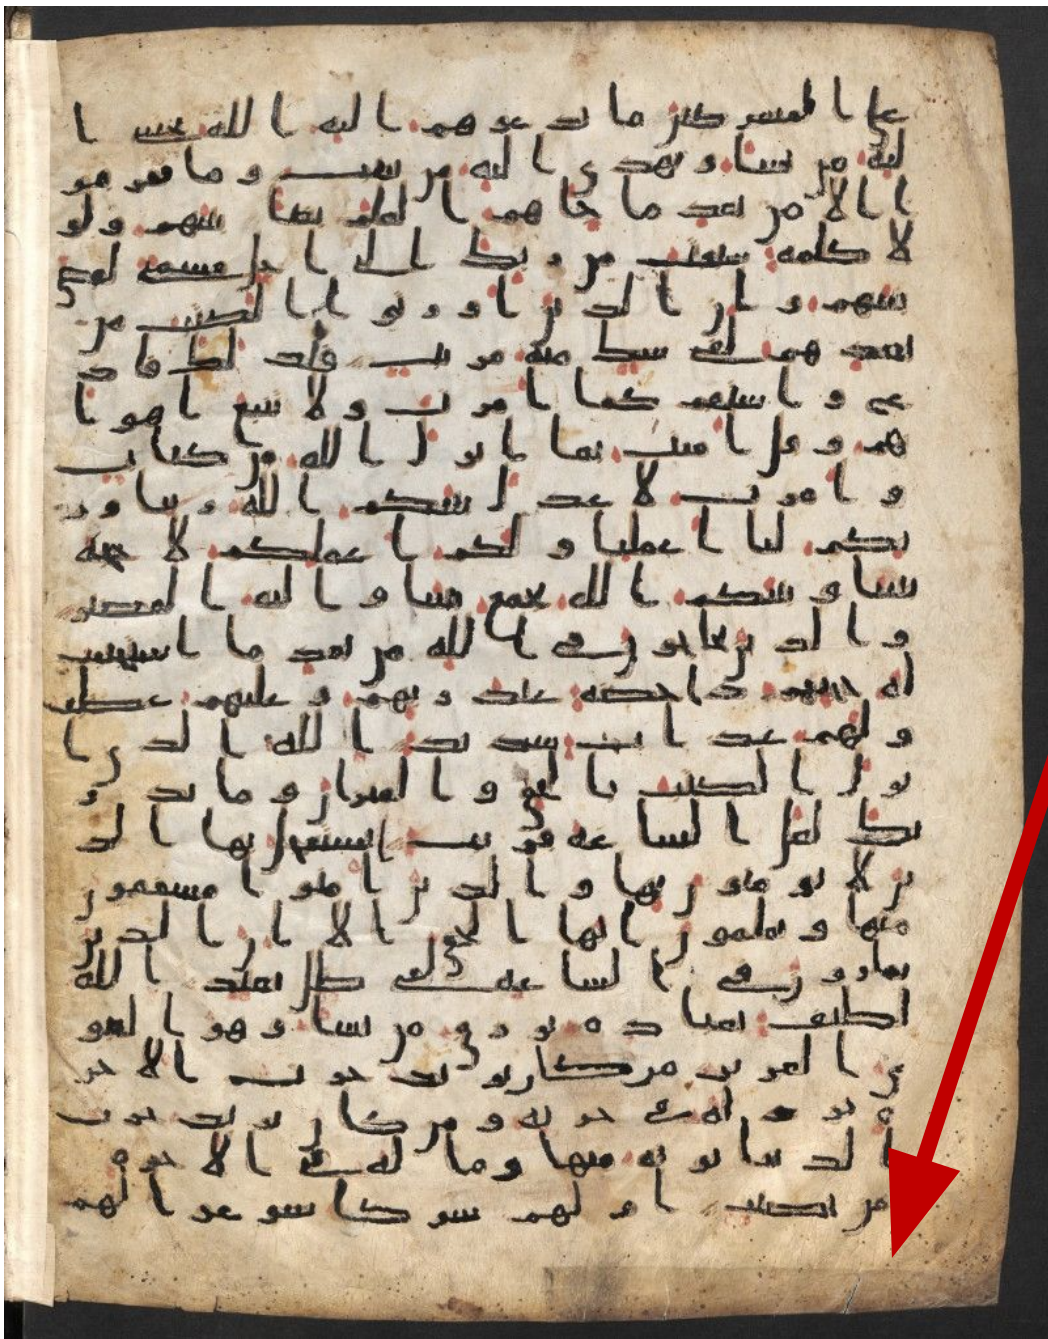 على المشركين ما تدعوهم اليه الله يجتبي ا
ليه من يشا ويهدي اليه من ينيب وما تفرقو
ا الا من بعد ما جاهم العلم بغيا بينهم ولو
لا كلمة سبقت من ربك الى اجل مسمى لقضي
بينهم وان الذين اورثوا الكتب من
بعدهم لفي شك منه مريب فلذلك فاد
ع واستقم كما امرت ولا تتبع اهوا
هم وقل امنت بما انزل الله من كتاب
وامرت لاعدل بينكم الله ربنا ور
بكم لنا اعملنا ولكم اعملكم لا حجة
بيننا وبينكم الله يجمع بيننا واليه المصير
والذين يحاجون في الله من بعد ما استجيب
له حجتهم داحضة عند ربهم وعليهم غضب
ولهم عذاب شديد الله الذي ا
نزل الكتب بالحق والميزان وما يدر
يك لعل الساعة قريب يستعجل بها الذ
ين لا يومنون بها والذين امنوا مشفقون
منها ويعلمون انها الحق الا ان الذين
يمارون في الساعة لفي ضلل بعيد الله
لطيف بعباده يرزق من يشا وهو القو
ي العزيز من كان يريد حرث الاخر
ة نزد له في حرثه ومن كان يريد حرث
الدنيا نوته منها وما له في الاخرة
من نصيب ام لهم شركا شرعوا لهم